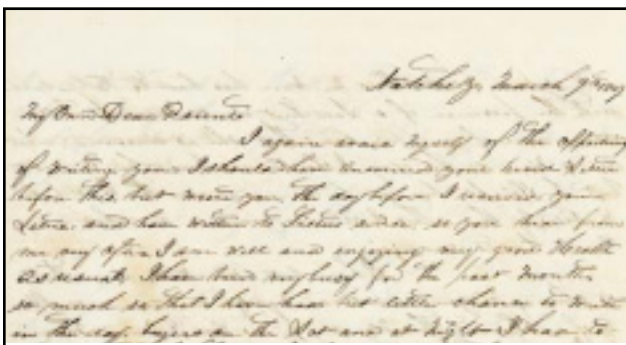 Natchez March 9th
My Own Dear Parents
I again avail myself of the
of writing you I should have answered your kind Letter
before this but wrote you the day before I received your
Letter and have written to since so you hear from
me any often I am well and enjoying very good Health
as usual I have been very busy for the past month
so much so that I have had but little chance to write
in the day on the and at Night I have to